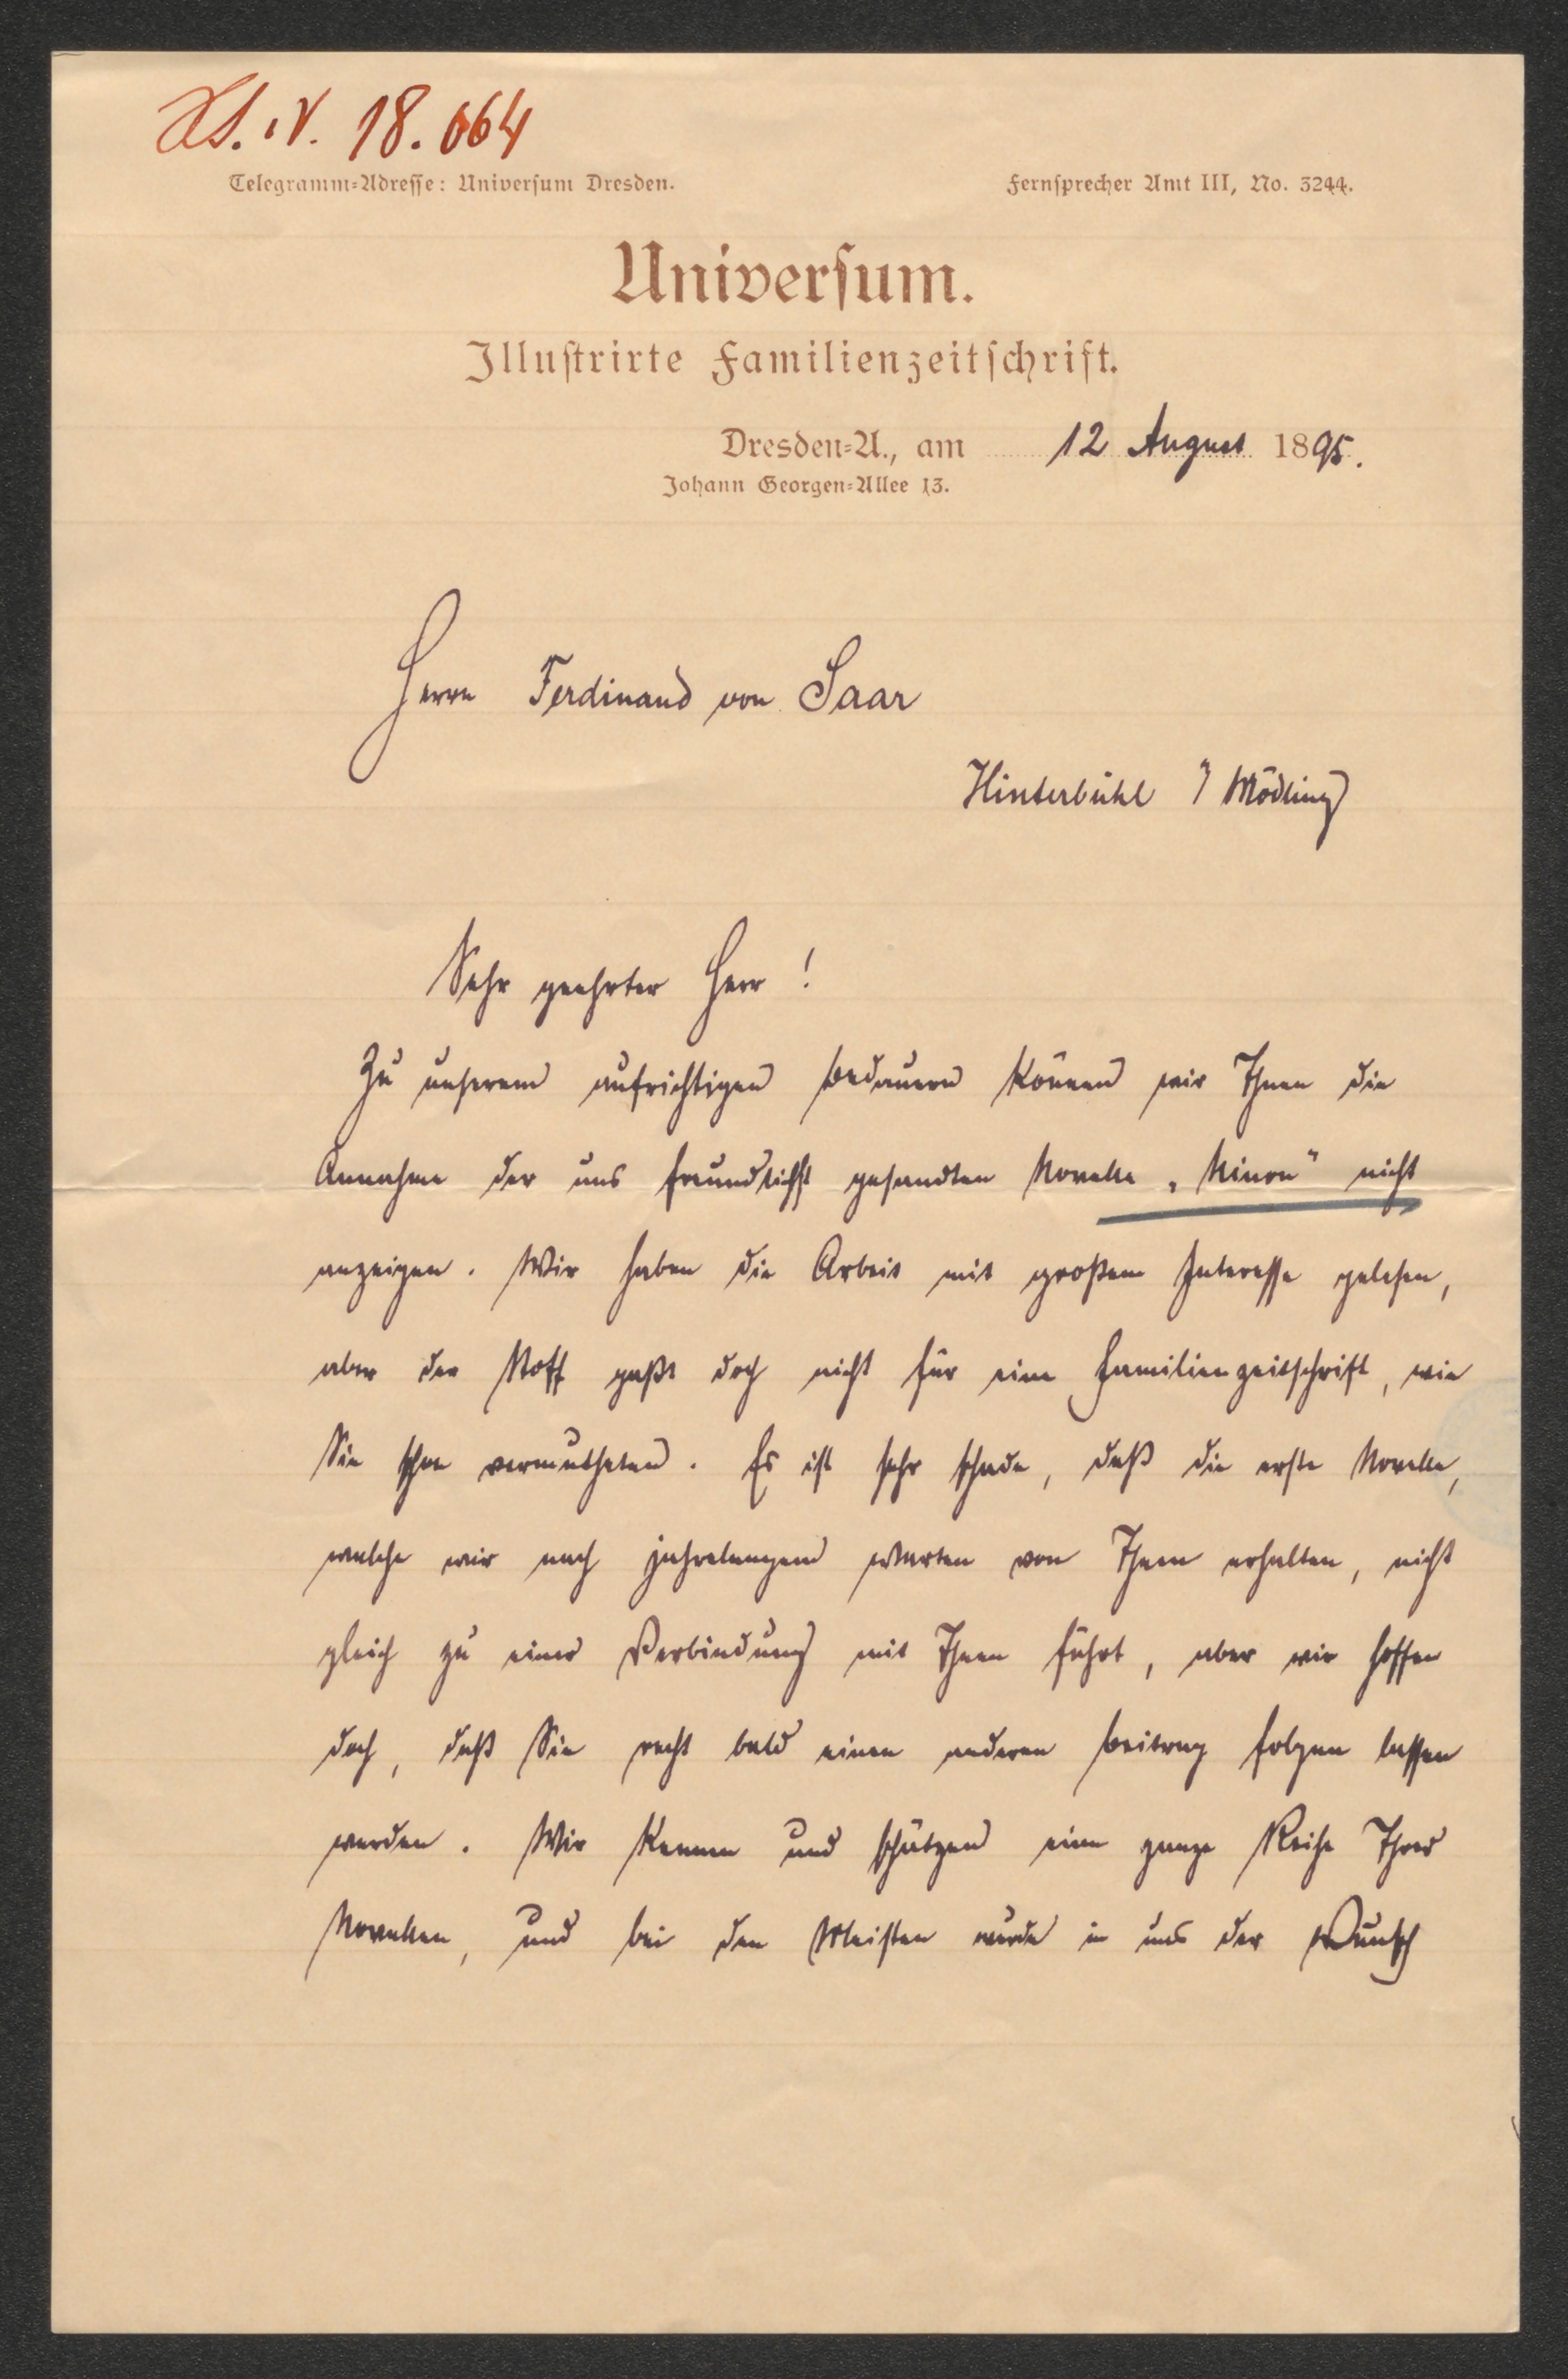 H.I.N. 18.064
Telegramm-Adresse: Universum Dresden.
Fernsprecher Amt III, No. 3244.
Universum.
Illustrirte Familienzeitschrift.
Dresden-A., am 12 August 1895.
Johann Georgen-Allee 13.
Herrn Ferdinand von Saar
Hinterbühl / Mödling
Sehr geehrter Herr!
Zu unserem aufrichtigen Bedauern können wir Ihnen die
Annahme der uns freundlichst gesandten Novelle „Ninon“ nicht
anzeigen. Wir haben die Arbeit mit großem Interesse gelesen,
aber der Stoff paßt doch nicht für eine Familienzeitschrift, wie
Sie schon vermutheten. Es ist sehr schade, daß die erste Novelle,
welche wir nach jahrelangem Warten von Ihnen erhalten, nicht
gleich zu einer Verbindung mit Ihnen führt, aber wir hoffen
doch, daß Sie recht bald einen anderen Beitrag folgen lassen
werden. Wir kennen und schätzen eine ganze Reihe Ihrer
Novellen, und bei den Meisten wurde in uns der Wunsch